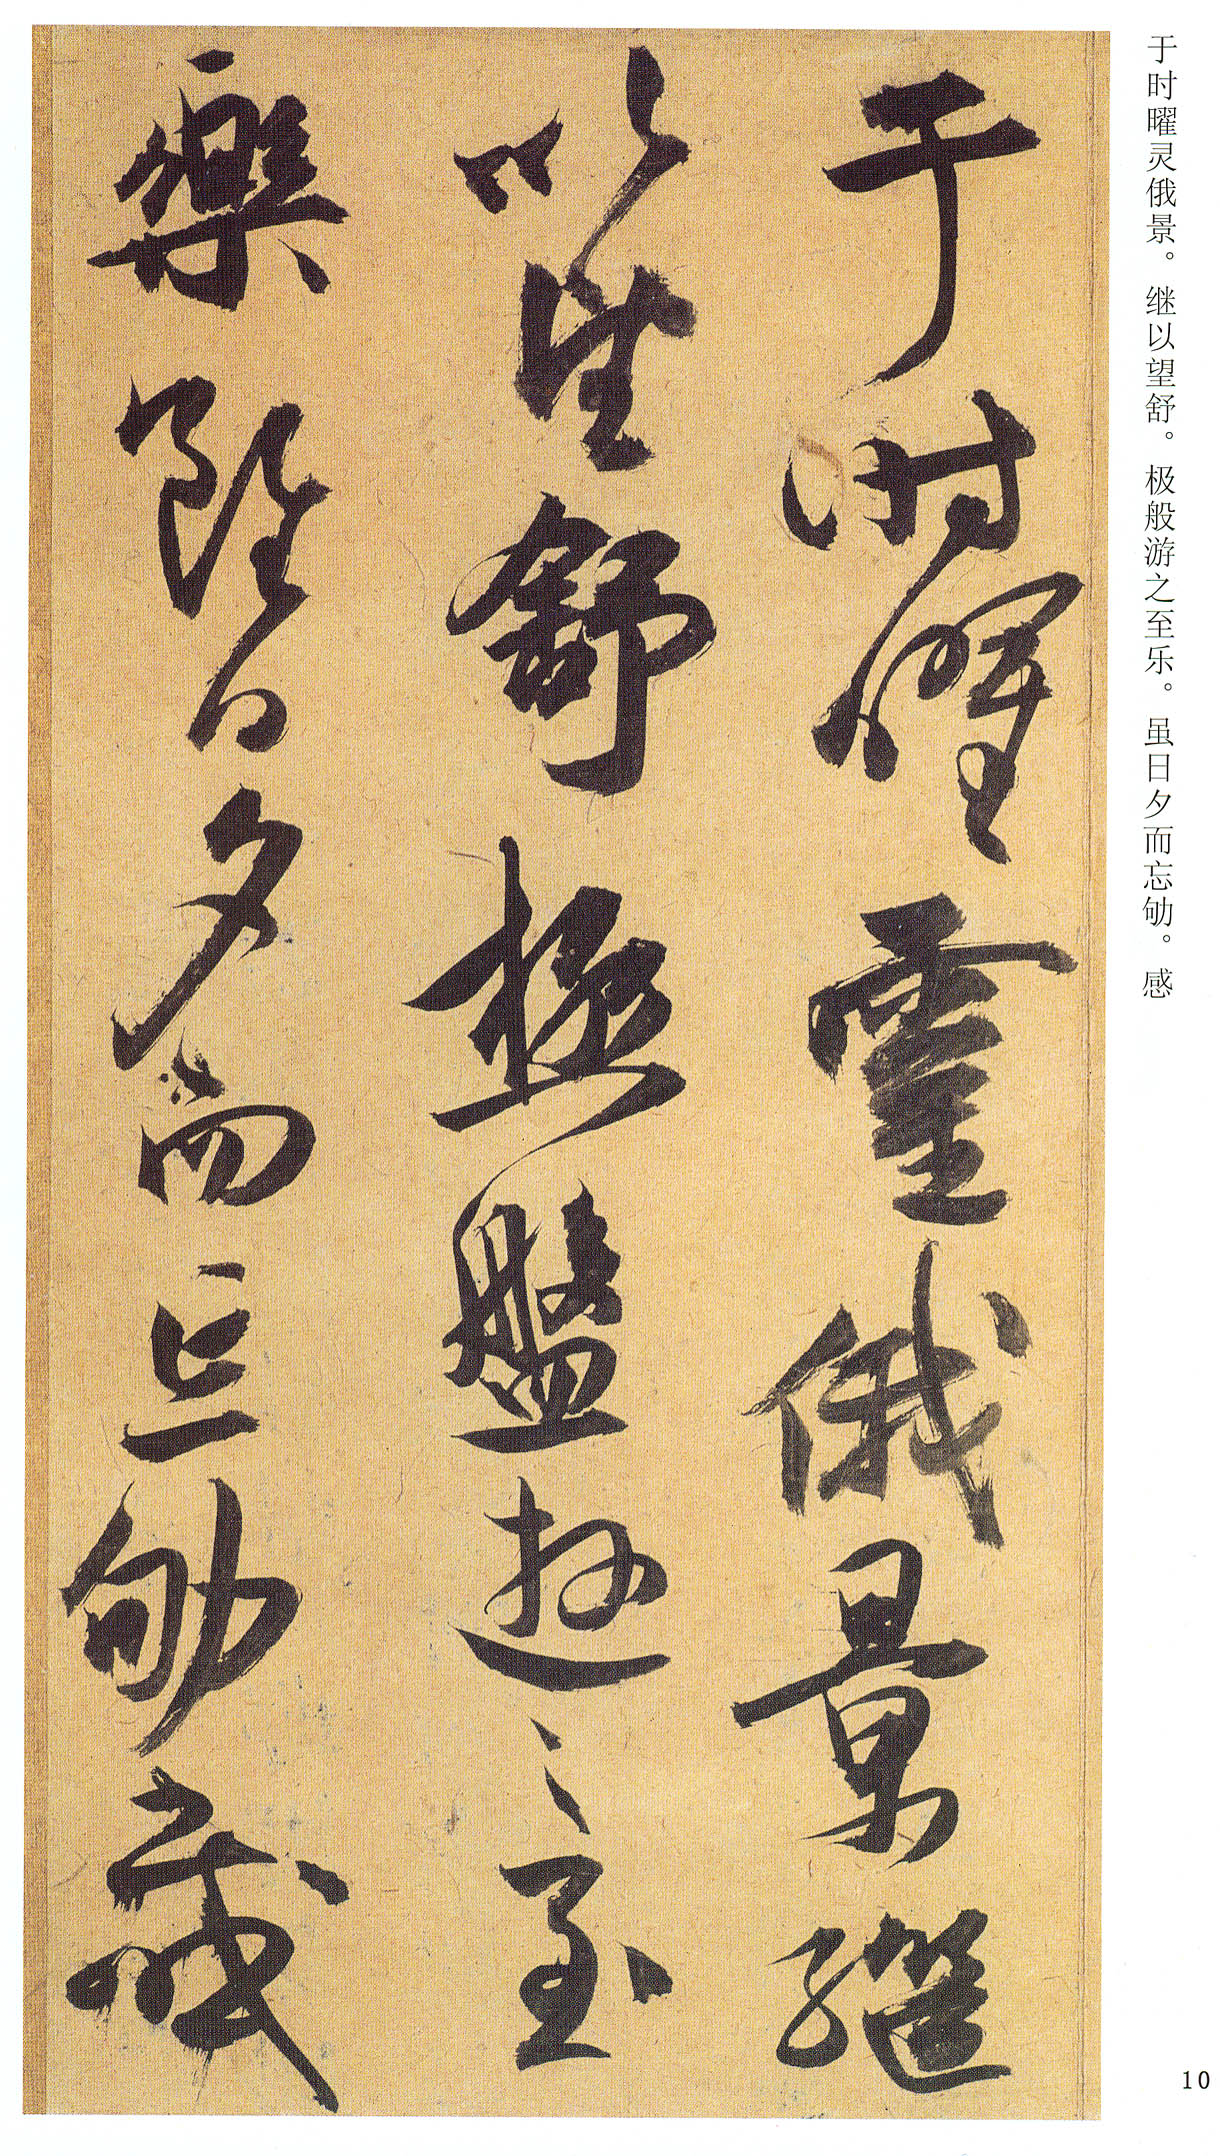 于时曜灵俄景。继以望舒。极般游之至乐。虽日夕而忘劬。感
于時曜靈俄景繼
以望舒極盤遊之至
樂雖日夕而忘劬感
10